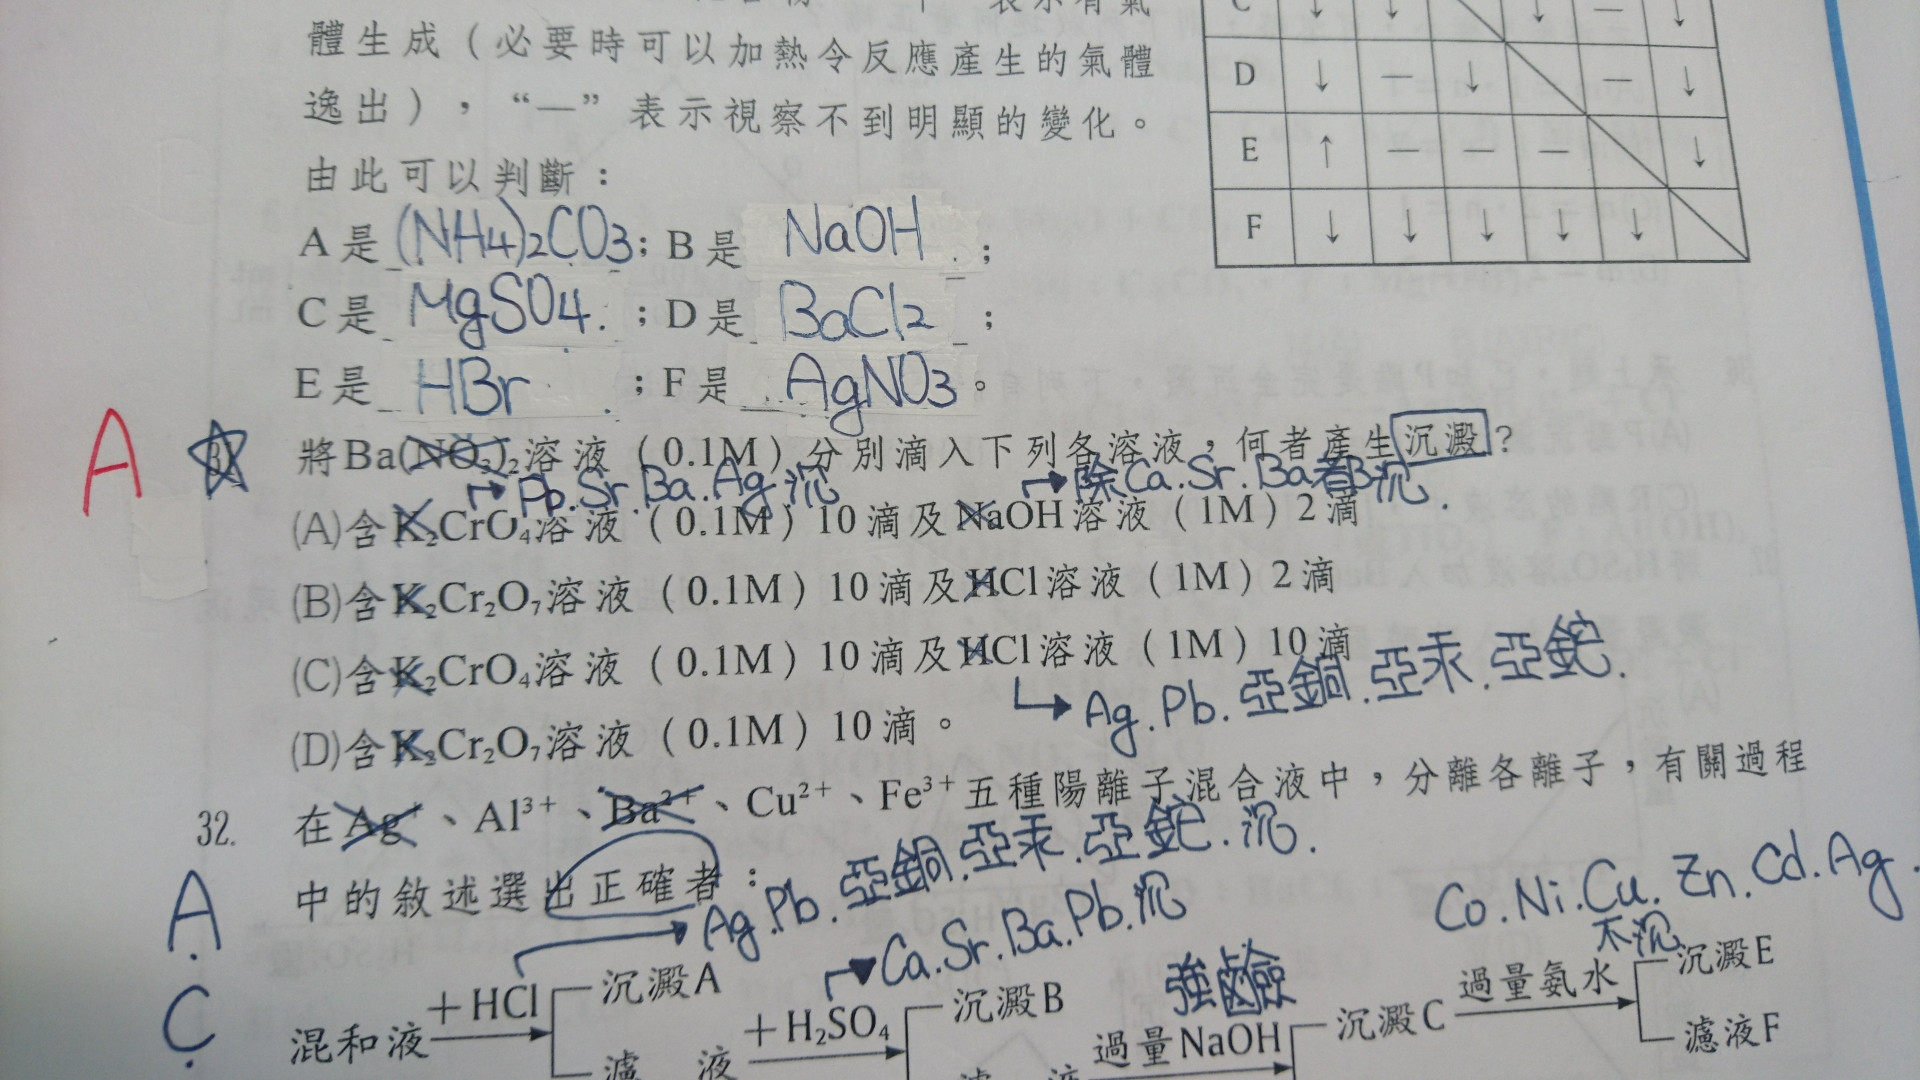 表示有氣
體生成（必要時可以加熱令反應產生的氣體
逸出），“—”表示視察不到明顯的變化。
由此可以判斷：
A是 (NH4)2CO3；B是 NaOH；
C是 MgSO4；D是 BaCl2；
E是 HBr；F是 AgNO3。
C ↓ ↓ ↓ — ↓
D ↓ — ↓ — ↓
E ↑ — — — ↓
F ↓ ↓ ↓ ↓ ↓
A
將Ba(NO₃)₂溶液（0.1M）分別滴入下列各溶液，何者產生沉澱？
Pb.Sr.Ba.Ag沉
除Ca.Sr.Ba都沉.
(A)含K₂CrO₄溶液（0.1M）10滴及NaOH溶液（1M）2滴
(B)含K₂Cr₂O₇溶液（0.1M）10滴及HCl溶液（1M）2滴
(C)含K₂CrO₄溶液（0.1M）10滴及HCl溶液（1M）10滴
Ag.Pb.亞銅.亞汞.亞鉈.
(D)含K₂Cr₂O₇溶液（0.1M）10滴。
32. 在Ag⁺、Al³⁺、Ba²⁺、Cu²⁺、Fe³⁺五種陽離子混合液中，分離各離子，有關過程
中的敘述選出正確者：
Ag.Pb.亞銅.亞汞.亞鉈.沉.
A.
C.
Ca.Sr.Ba.Pb.沉
Co.Ni.Cu.Zn.Cd.Ag.
不沉
強鹼
混和液 +HCl 沉澱A
濾 液 +H₂SO₄ 沉澱B
過量NaOH 沉澱C 過量氨水 沉澱E
濾液F